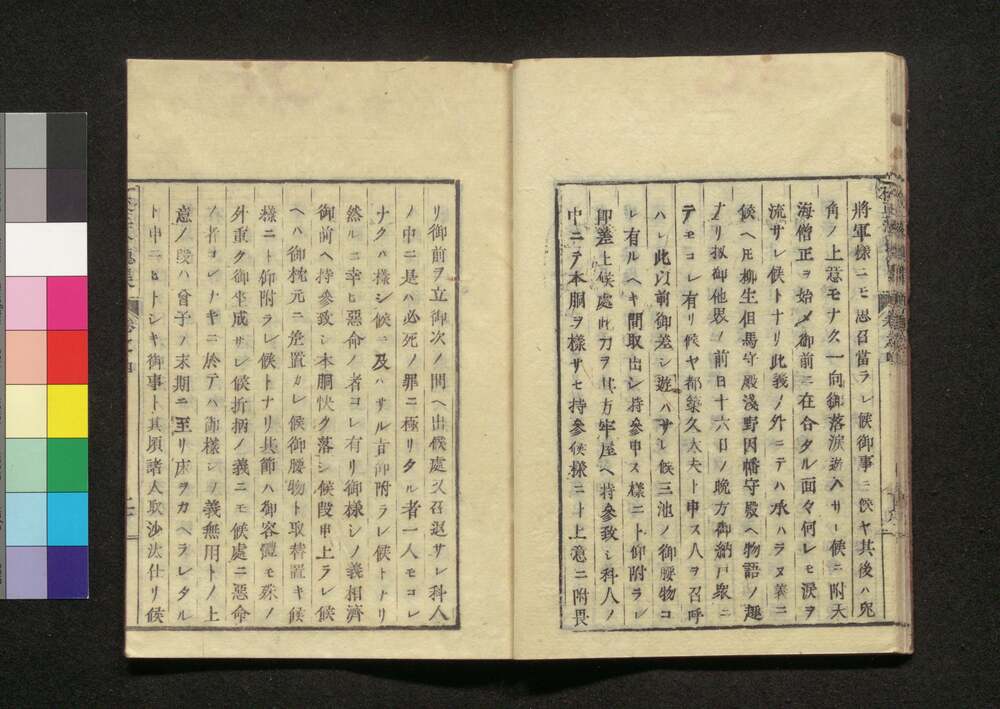 將軍樣ニモ思召當ラレ候御事ニ候ヤ其後ハ兎
角ノ上意モナク一向御落淚遊ハサレ候ニ附天
海僧正ヲ始メ御前ニ在合タル面々何レモ淚ヲ
流サレ候トナリ此義ノ外ニテハ承ハラヌ義ニ
候ヘ𪜈柳生但馬守殿淺野因幡守殿ヘ物語ノ趣
ナリ扨御他界ノ前日十六日ノ晩方御納戸衆ニ
テモコレ有リ候ヤ都築久太夫ト申ス人ヲ召呼
ハレ此以前御差シ遊ハサレ候三池ノ御腰物コ
レ有ルヘキ間取出シ持參申ス樣ニト仰附ラレ
即差上候處此刀ヲ其方牢屋ヘ持參致シ科人ノ
中ニテ本胴ヲ樣サセ持參候樣ニト上意ニ附畏
リ御前ヲ立御次ノ間ヘ出候處又召返サレ科人
ノ中ニ是ハ必死ノ罪ニ極リタル者一人モコレ
ナクハ樣シ候ニ及ハサル旨仰附ラレ候トナリ
然ルニ幸ヒ惡命ノ者コレ有リ御樣シノ義相濟
御前ヘ持參致シ本胴快ク落シ候段申上ラレ候
ヘハ御枕元ニ差置カレ候御腰物ト取替置キ候
樣ニト御附ラレ候トナリ其節ハ御容體モ殊ノ
外重ク御坐成サレ候折柄ノ義ニモ候處ニ惡命
ノ者コレナキニ於テハ御樣シノ義無用トノ上
意ノ段ハ曾子ノ末期ニ至リ床ヲカヘラレタル
ト申ニヒトシキ御事ト其頃諸人取沙汰仕リ候